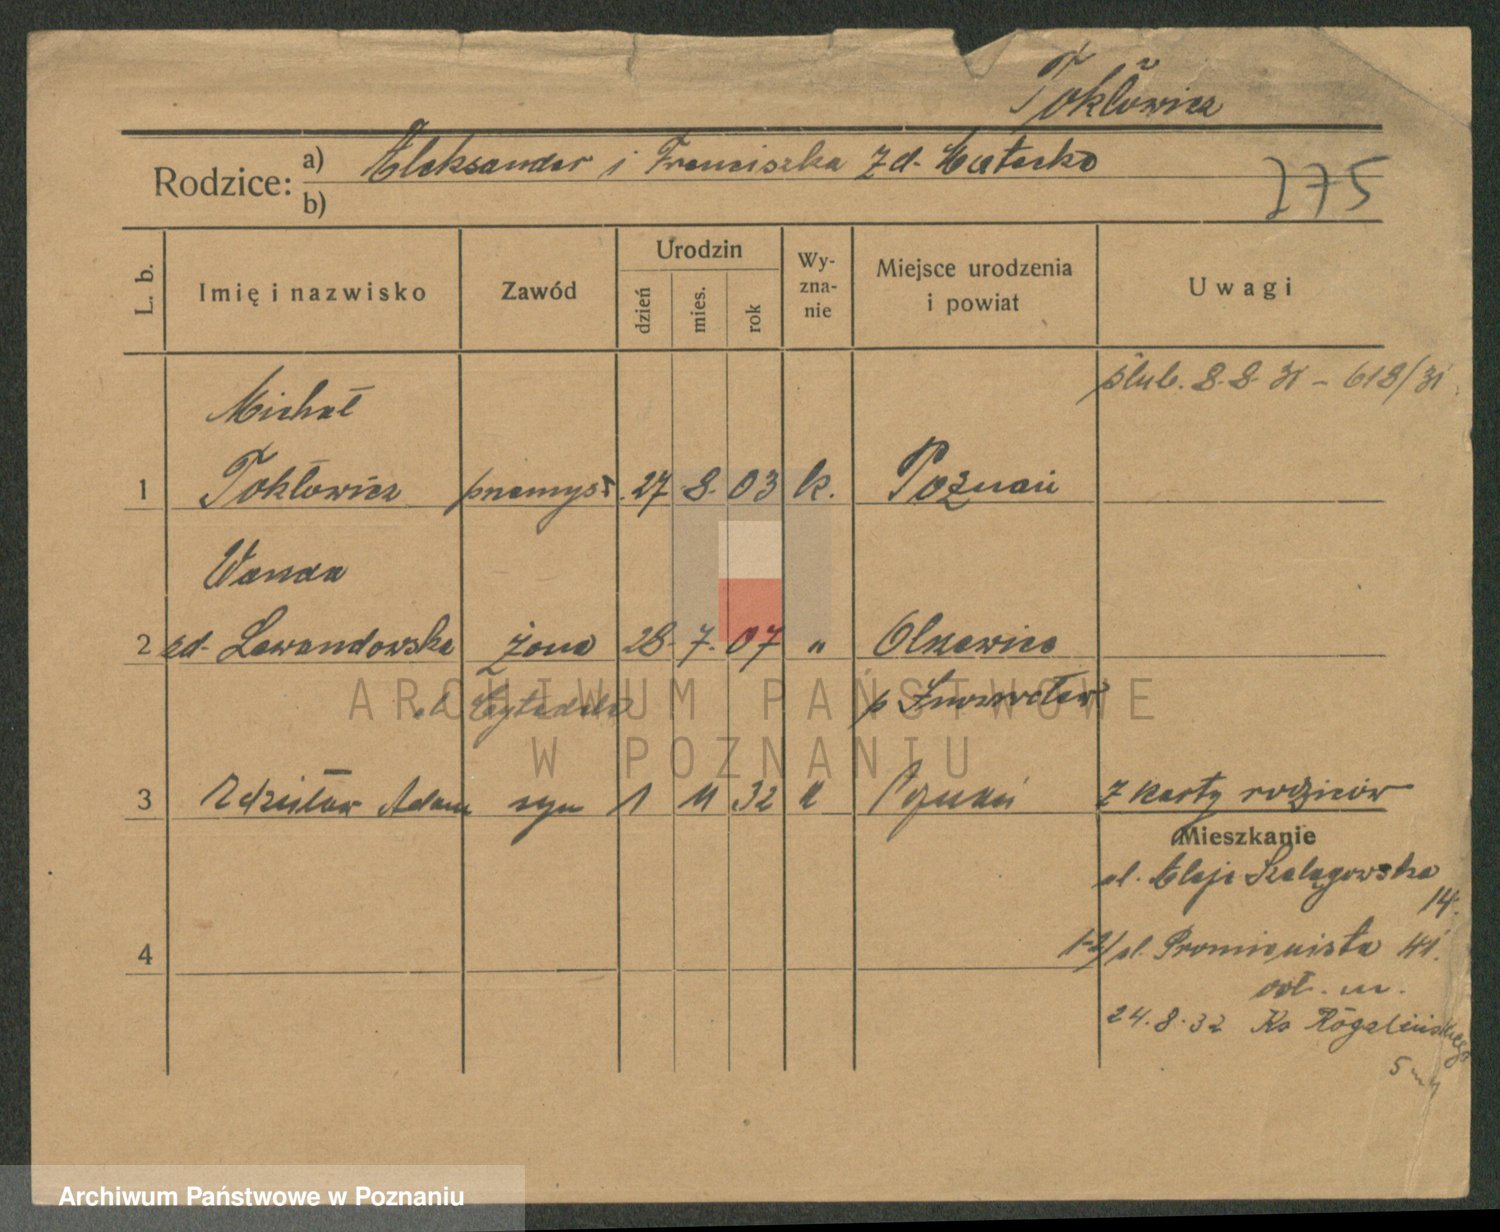 Tokłowicz
Rodzice: a) Aleksander i Franciszka z d. Małecka
b)
275
L. b.
Imię i nazwisko
Zawód
Urodzin
dzień
mies.
rok
Wy-
zna-
nie
Miejsce urodzenia
i powiat
Uwagi
ślub. 8.8.31 – 618/31
Michał
1 Tokłowicz przemysł. 27. 8. 03 k. Poznań
Wanda
2 zd. Lewandowska żona 28. 7. 07 " Olszewice
p Inowrocław
3 Zdzisław Adam syn 1 11 32 " Poznań z karty rodziców
Mieszkanie
ul. Aleje Szelągowska
14.
4
ul. Promienista 41.
24.8.32 Ks Rogalińskiego
ARCHIWUM PAŃSTWOWE
W POZNANIU
Archiwum Państwowe w Poznaniu